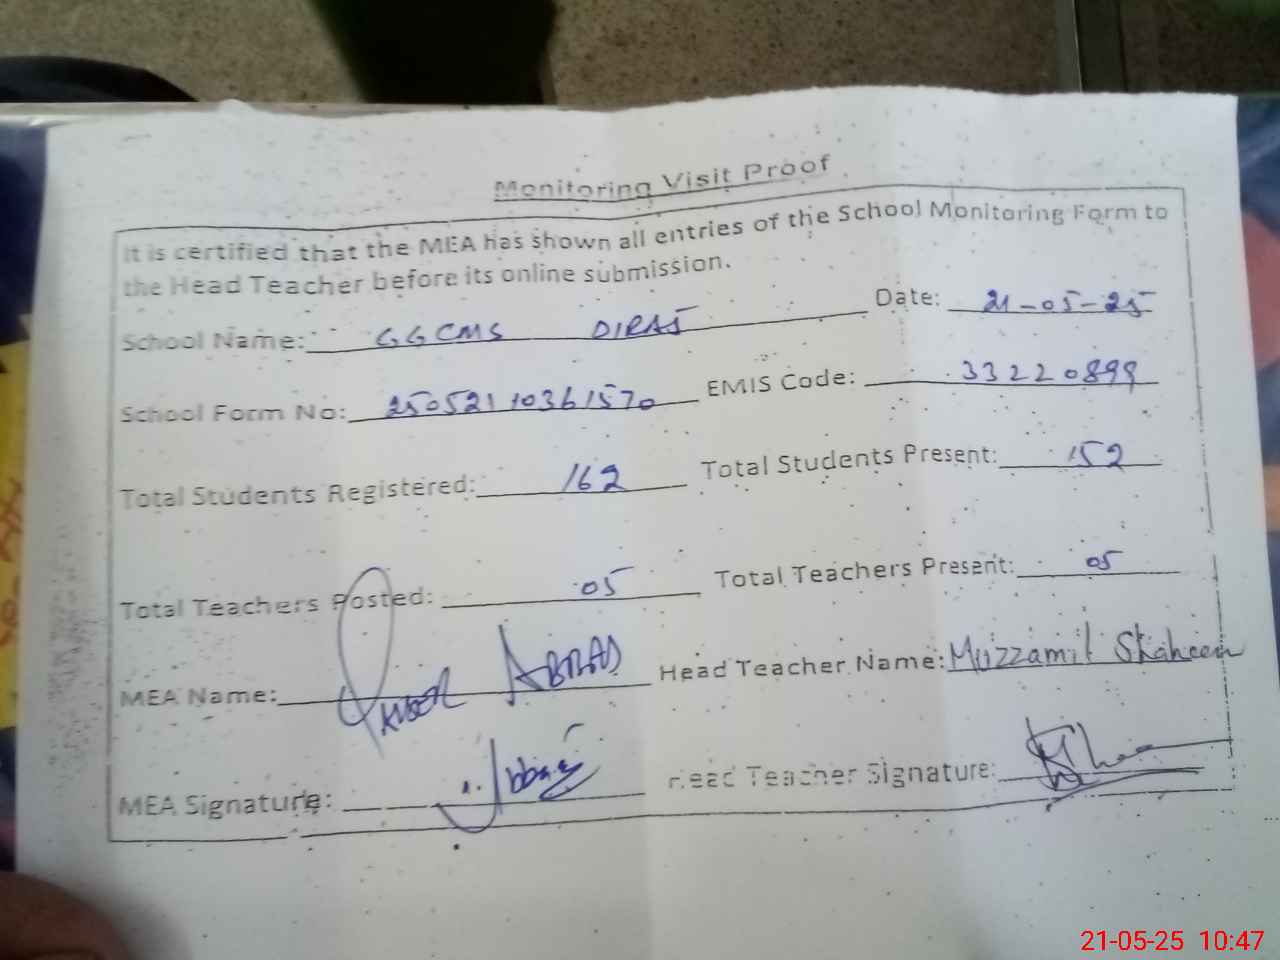 Monitoring Visit Proof
It is certified that the MEA has shown all entries of the School Monitoring Form to
the Head Teacher before its online submission.
School Name: GGCMS DIRAJ Date: 21-05-25
School Form No: 25052110361570 EMIS Code: 33220899
Total Students Registered: 162 Total Students Present: 152
Total Teachers Posted: 05 Total Teachers Present: 05
MEA Name: ABBAS Head Teacher Name: Muzzamil Shaheen
MEA Signature: Head Teacher Signature:
21-05-25 10:47